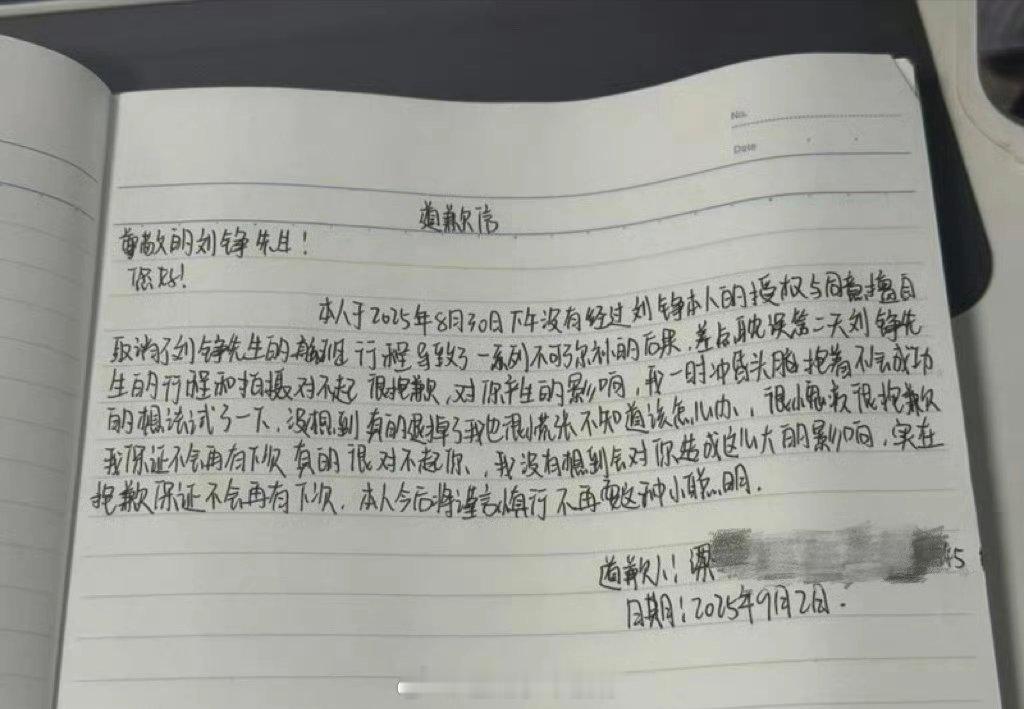 No.
Date
道歉信
尊敬的刘铮先生!
您好!
本人于2025年8月30日下午没有经过刘铮本人的授权与同意擅自
取消了刘铮先生的航班行程导致了一系列不可弥补的后果,差点耽误第二天刘铮先
生的行程和拍摄对不起 很抱歉,对你产生的影响,我一时冲昏头脑抱着不会成功
的想法试了一下,没想到真的退掉了我也很慌张不知道该怎么办,很愧疚很抱歉
我保证不会再有下次 真的很对不起你,我没有想到会对你造成这么大的影响,实在
抱歉保证不会再有下次.本人今后将谨言慎行 不再耍这种小聪明.
道歉人:
45
日期:2025年9月2日.